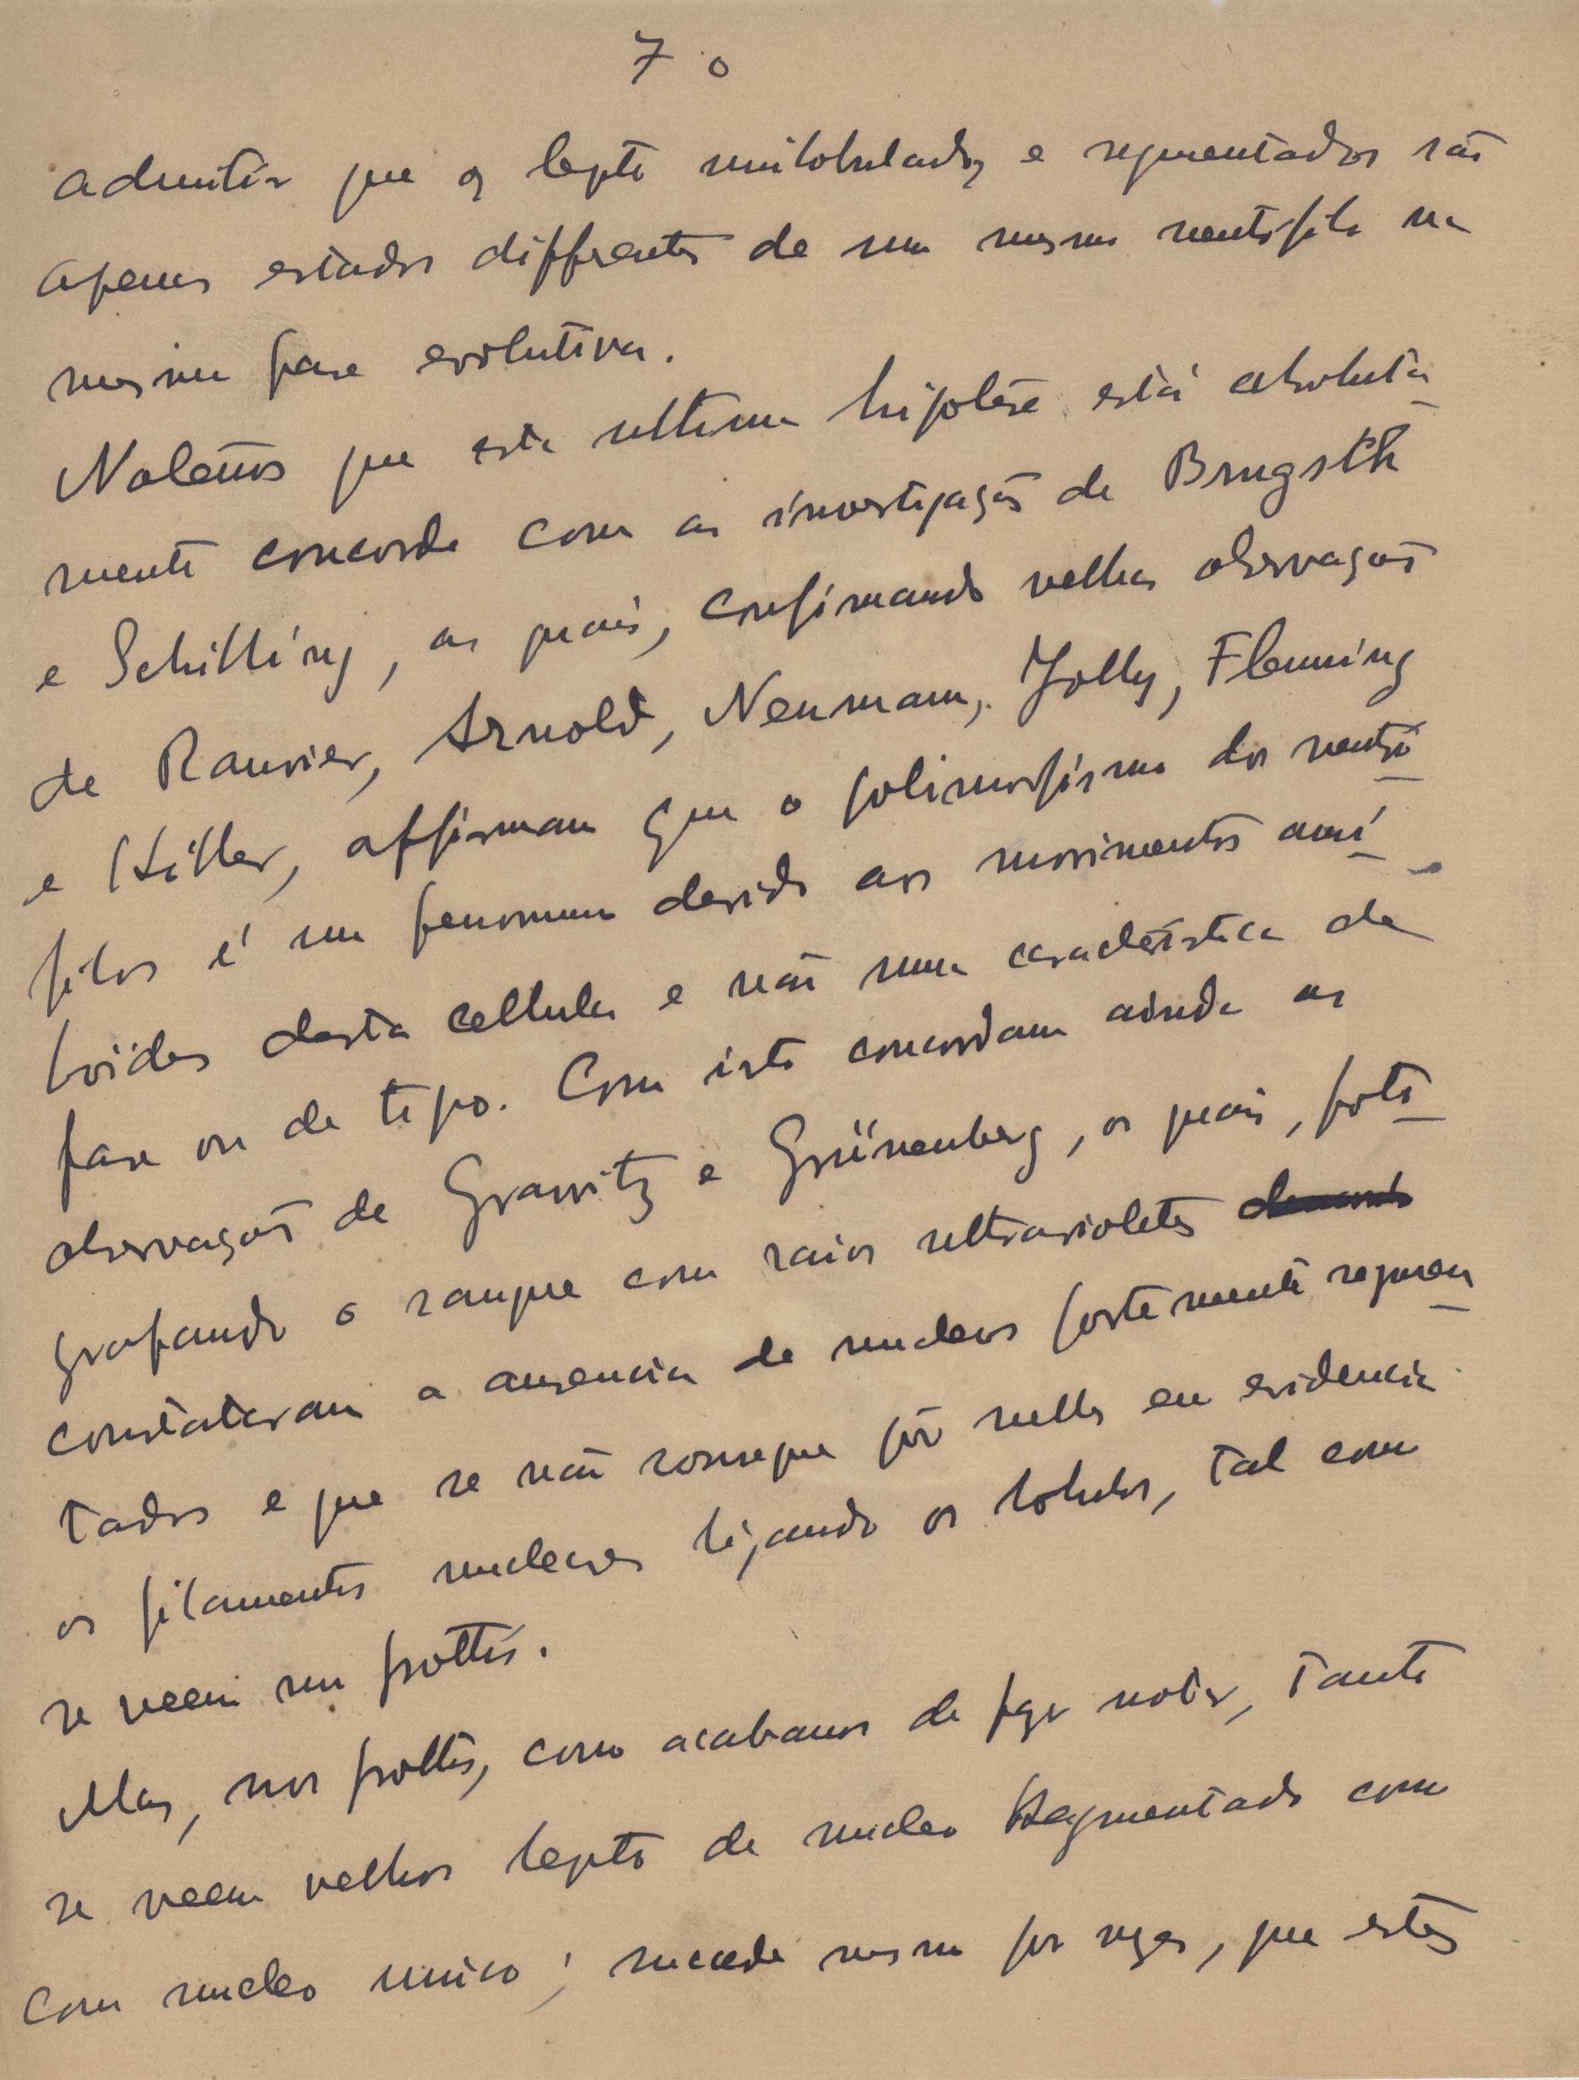 7 o
admitir que os lepto unilobulados e segmentados são
apenas estados differentes de um mesmo neutrofilo na
mesma fase evolutiva.
Notemos que esta ultima hipotese está absoluta_
mente concorde com as investigações de Brugsch
e Schilling, as quais, confirmando velhas observações
de Ranvier, Arnold, Neumann, Jolly, Flemming
e Hiller, affirmam que o polimorfismo dos neutró_
filos é um fenomeno devido aos movimentos ami_
boides desta cellula e não uma caracteristica de
fase ou de tipo. Com isto concordam ainda as
observações de Grawitz e Grünenberg, os quais, foto_
grafando o sangue com raios ultravioletes
constataram a ausencia de nucleos fortemente segmen_
tados e que se não consegue pôr nelles em evidencia
os filamentos nucleares ligando os lobulos, tal como
se veem nu frottis.
Mas, nos frottis, como acabamos de fazer notar, tanto
se veem velhos lepto de nucleo segmentado como
com nucleo unico; succede mesmo por vezes, que estes